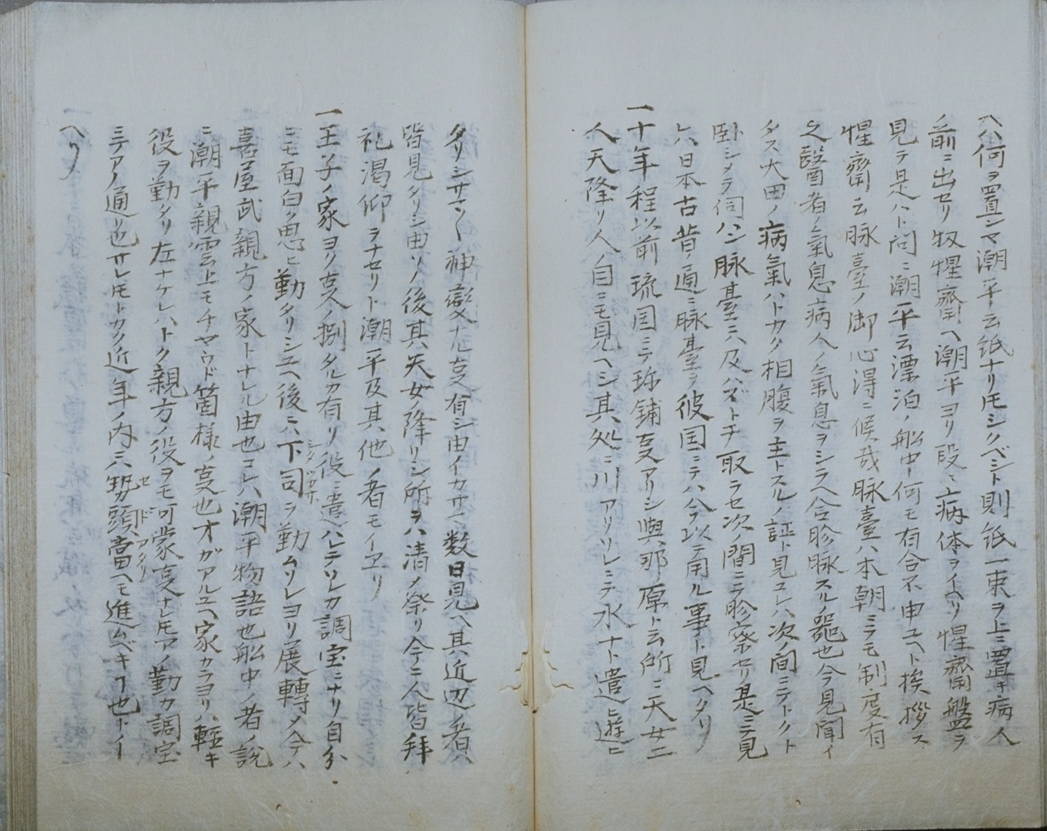 ヘハ何ヲ置シヤ潮平云紙ナリトモシクベシト則紙一束ヲ上ニ置キ病人
ノ前ニ出セリ扨惺齋ヘ潮平ヨリ段々病体ヲイヘリ惺齋盤ヲ
見テ是ハト問ニ潮平云漂泊ノ船中何モ有合不申ユヘト挨拶ス
惺齋云脉臺ノ御心得ニ候哉脉臺ハ本朝ニテモ制度有
之醫者ノ氣息病人ノ氣息ヲシラヘ合診脉スルノ器也今見聞イ
タス大田ノ病氣ハトカク相腹ヲ主トスルノ証ト見エレハ次ノ間ニテトクト
卧シメテ伺ハン脉臺ニハ及ハズトテ取ラセ次ノ間ニテ診察セリ是ニテ見
ハ日本古昔ノ通ニ脉臺ヲ彼国ニテハ今以テ用ル事ト見ヘタリ
一十年程以前琉国ニテ珎鋪支アリシ與那原ト云所ニ天女二
人天降リ人ノ目ニモ見ヘシ其処ニ川アリソレニテ水ナト遣ヒ遊ヒ
タリシサマ〱神變ナル支有シ由イカサマ数日見ヘ其近辺ノ者ハ
皆見タリシ由ソノ後其天女降リシ所ヲハ清メ祭リ今ニ人皆拜
礼渇仰ヲナセリト潮平及其他ノ者モイヱリ
一王子ノ家ヨリ支ノ捌タルカ有リ役ニ進ハンテソレカ調宝ニナリ自分
ニモ面白ク思ヒ勤タリシユヘ後ニハ下司ヲ勤ムソレヨリ展轉メ今テハ
喜屋武親方ノ家トナレル由也コレハ潮平物語也船中ノ者ノ説
ニ潮平ノ親雲上モチヤウド箇樣ノ支也オガアルユヘ家カラヨリハ軽キ
役ヲ勤タリ左ナケレハトク親方ノ役ヲモ可蒙支ナレトモ勤カ調宝
ニテアノ通リ也サレトモトカク近年ノ内ニハ勢頭當ヘモ進ムベキフ也トイ
ヘリ